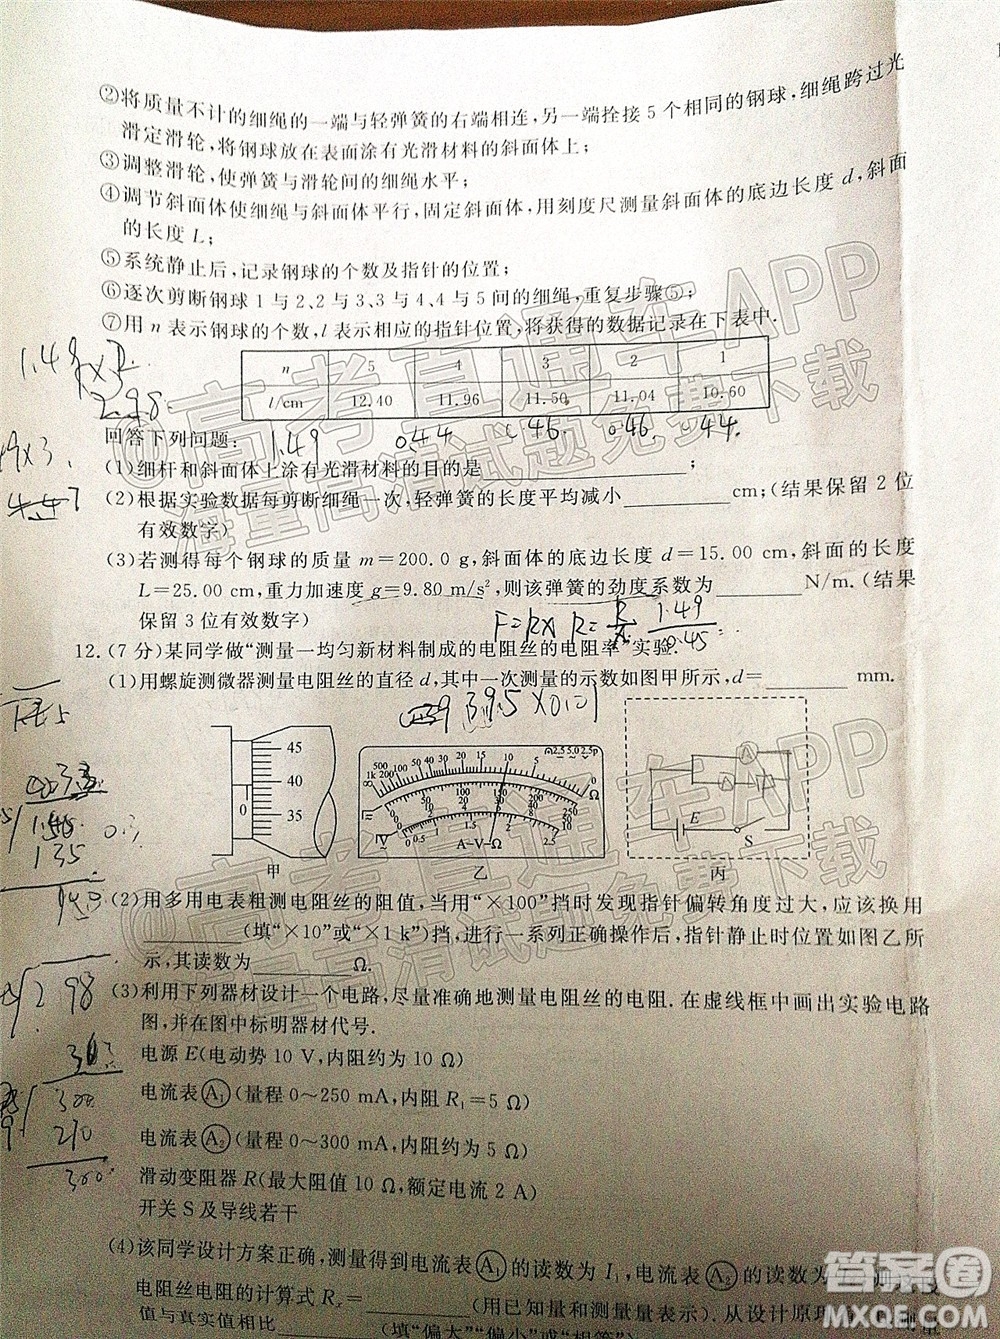 ②将质量不计的细绳的一端与轻弹簧的右端相连,另一端拴接5个相同的钢球,细绳跨过光
滑定滑轮,将钢球放在表面涂有光滑材料的斜面体上;
③调整滑轮,使弹簧与滑轮间的细绳水平;
④调节斜面体使细绳与斜面体平行,固定斜面体,用刻度尺测量斜面体的底边长度 d,斜面
的长度 L;
⑤系统静止后,记录钢球的个数及指针的位置;
⑥逐次剪断钢球1与2、2与3、3与4、4与5间的细绳,重复步骤⑤;
⑦用 n 表示钢球的个数,l 表示相应的指针位置,将获得的数据记录在下表中.
n 5 4 3 2 1
l/cm 12.40 11.96 11.50 11.04 10.60
1.49 0.44 0.46. 0.46. 0.44.
回答下列问题:
(1)细杆和斜面体上涂有光滑材料的目的是________;
(2)根据实验数据每剪断细绳一次,轻弹簧的长度平均减小________cm;(结果保留2位
有效数字)
(3)若测得每个钢球的质量 m=200.0 g,斜面体的底边长度 d=15.00 cm,斜面的长度
L=25.00 cm,重力加速度 g=9.80 m/s²,则该弹簧的劲度系数为________N/m.(结果
保留3位有效数字)
12.(7分)某同学做“测量一均匀新材料制成的电阻丝的电阻率”实验.
(1)用螺旋测微器测量电阻丝的直径 d,其中一次测量的示数如图甲所示,d=________mm.
39.5×0.01
45
40
35
0
甲
A-V-Ω
乙
A
A
E
S
丙
(2)用多用电表粗测电阻丝的阻值,当用“×100”挡时发现指针偏转角度过大,应该换用
________(填“×10”或“×1 k”)挡,进行一系列正确操作后,指针静止时位置如图乙所
示,其读数为________Ω.
(3)利用下列器材设计一个电路,尽量准确地测量电阻丝的电阻.在虚线框中画出实验电路
图,并在图中标明器材代号.
电源 E(电动势 10 V,内阻约为 10 Ω)
电流表 A₁(量程 0~250 mA,内阻 R₁=5 Ω)
电流表 A₂(量程 0~300 mA,内阻约为 5 Ω)
滑动变阻器 R(最大阻值 10 Ω,额定电流 2 A)
开关 S 及导线若干
(4)该同学设计方案正确,测量得到电流表 A₁ 的读数为 I₁,电流表 A₂ 的读数为
电阻丝电阻的计算式 Rₓ=________(用已知量和测量量表示).从设计原理
值与真实值相比________(填“偏大”“偏小”或“相等”).
@高考直通车APP
海量高清试题免费下载
@高考直通车APP
海量高清试题免费下载
答案圈
MXQE.COM